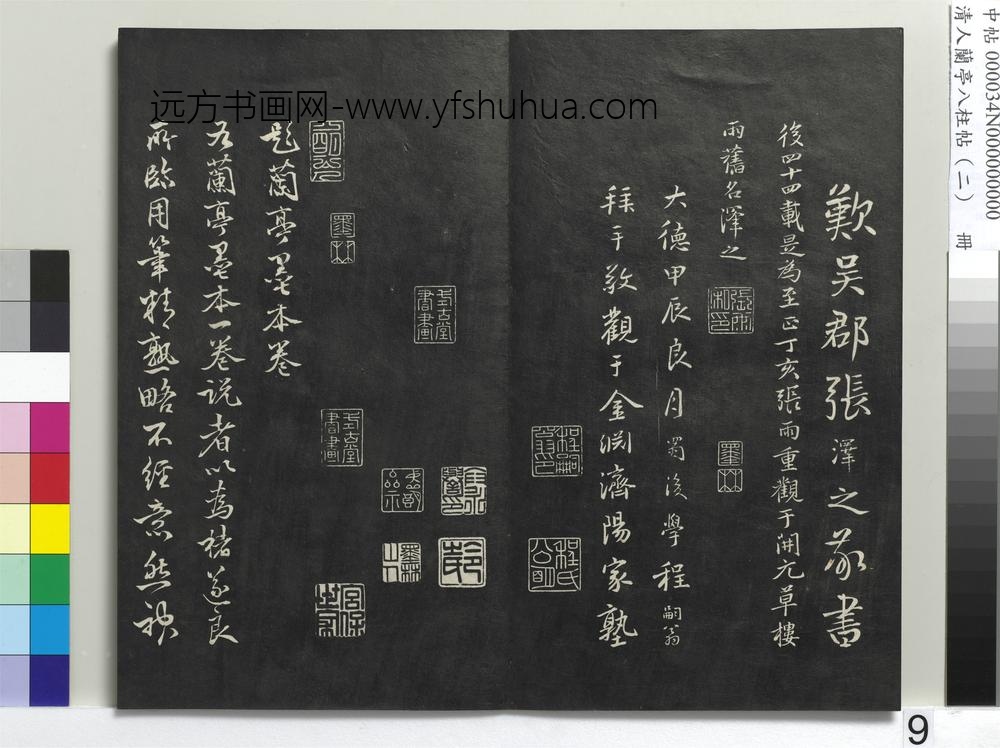 歎吳郡張澤之敬書
後四十四載是為至正丁亥張雨重觀于開元草樓
雨舊名澤之
大德甲辰良月蜀後學程嗣翁
拜手敬觀于金淵濟陽家塾
題蘭亭墨本卷
右蘭亭墨本一卷說者以為褚遂良
所臨用筆精熟略不經意然神
远方书画网-www.yfshuhua.com
中帖 000034N000000000
清人蘭亭八柱帖（二） 冊
9
墨林
式古堂書畫
式古堂書畫
墨林
程氏公明
墨林山人